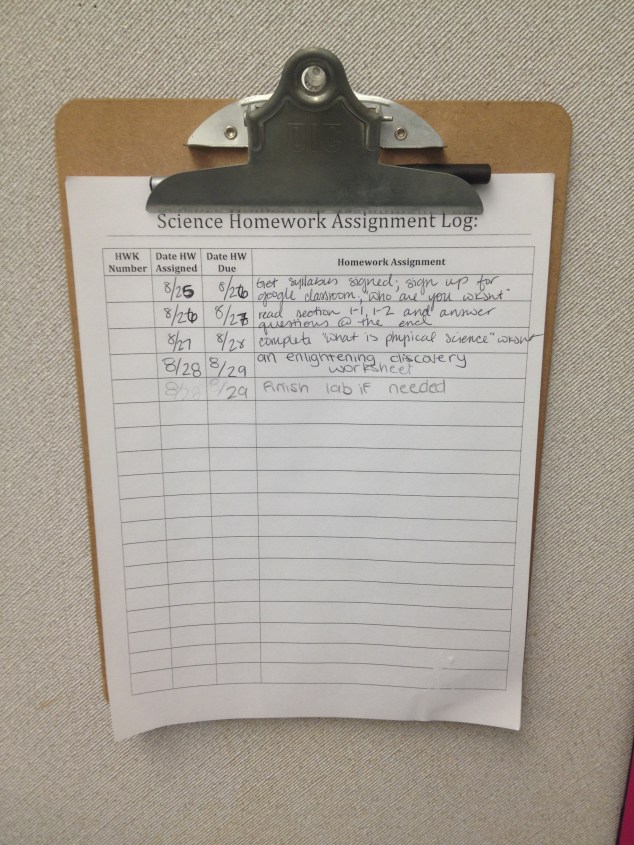 Science Homework Assignment Log:
HWK Number Date HW Assigned Date HW Due Homework Assignment
8/25 8/26 Get syllabus signed; sign up for
google classroom, "who are you wksht"
8/26 8/27 read section 1-1, 1-2 and answer
questions @ the end
8/27 8/28 complete "what is physical science" wksht
8/28 8/29 an enlightening discovery
worksheet
8/29 Finish lab if needed